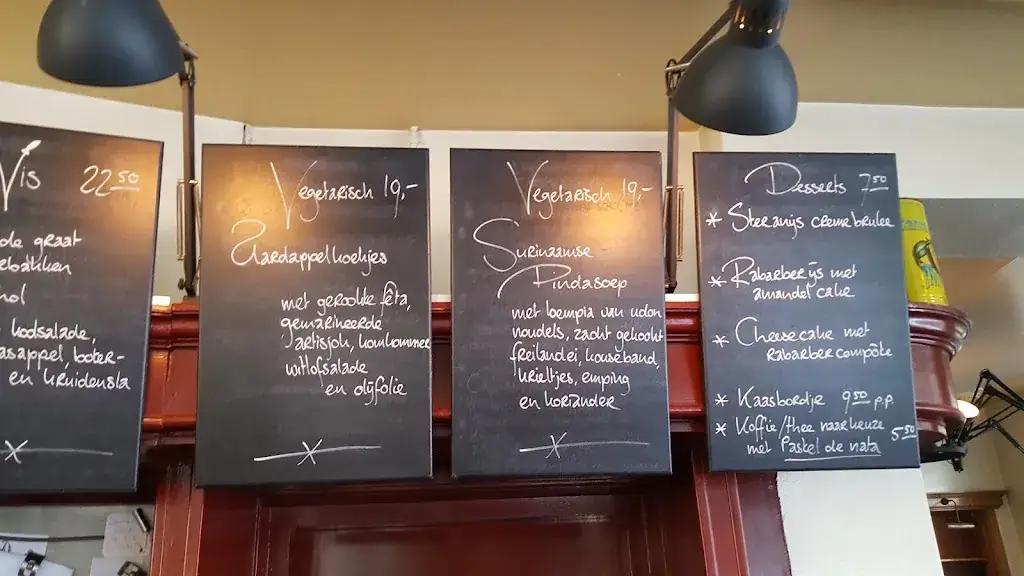 Vis 22.50
de graat
ebakken
hol
koolsalade,
asappel, boter-
en kruidensla
Vegetarisch 19,-
Aardappelkoekjes
met gerookte fêta,
gemarineerde
artisjok, komkommer
witlofsalade
en olijfolie
Vegetarisch 19,-
Surinaamse
Pindasoep
met loempia van udon
noudels, zacht gekookt
freilandei, kouseband,
krieltjes, emping
en koriander
Desserts 7.50
* Steranijs creme brulee
* Rabarberijs met
amandel cake
* Cheesecake met
Rabarber compôte
* Kaasbordje 9.50 p.p.
* Koffie/thee naar keuze 5.50
met Pastel de nata